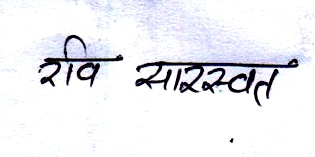 रवि सारस्वत